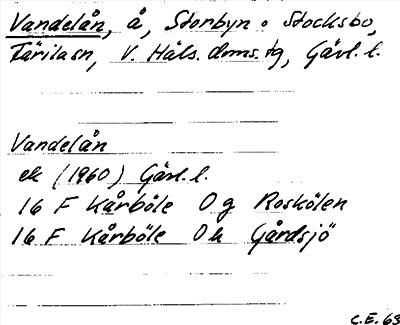 Vandelån, å, Storbyn o Stocksbo,
Färilasn, V. Häls. doms.tg, Gävl. l.
Vandelån
ek (1960) Gävl. l.
16 F Kårböle 0 g Roskölen
16 F Kårböle 0 h Gårdsjö
C.E. 63